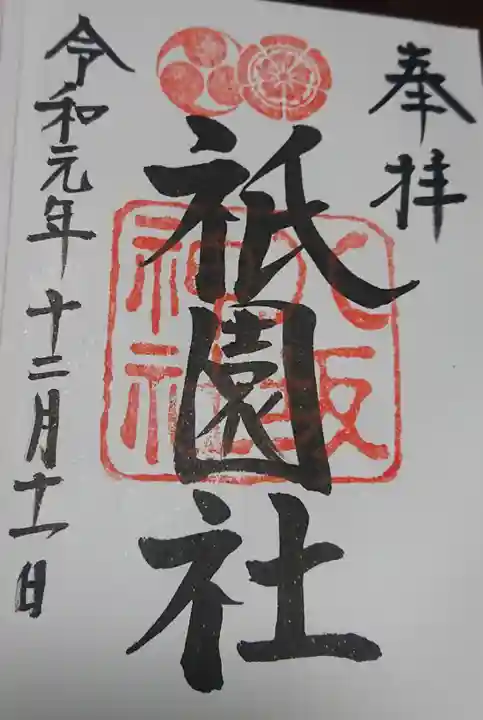 奉拝
祇園社
八坂
神社
令和元年十二月十一日